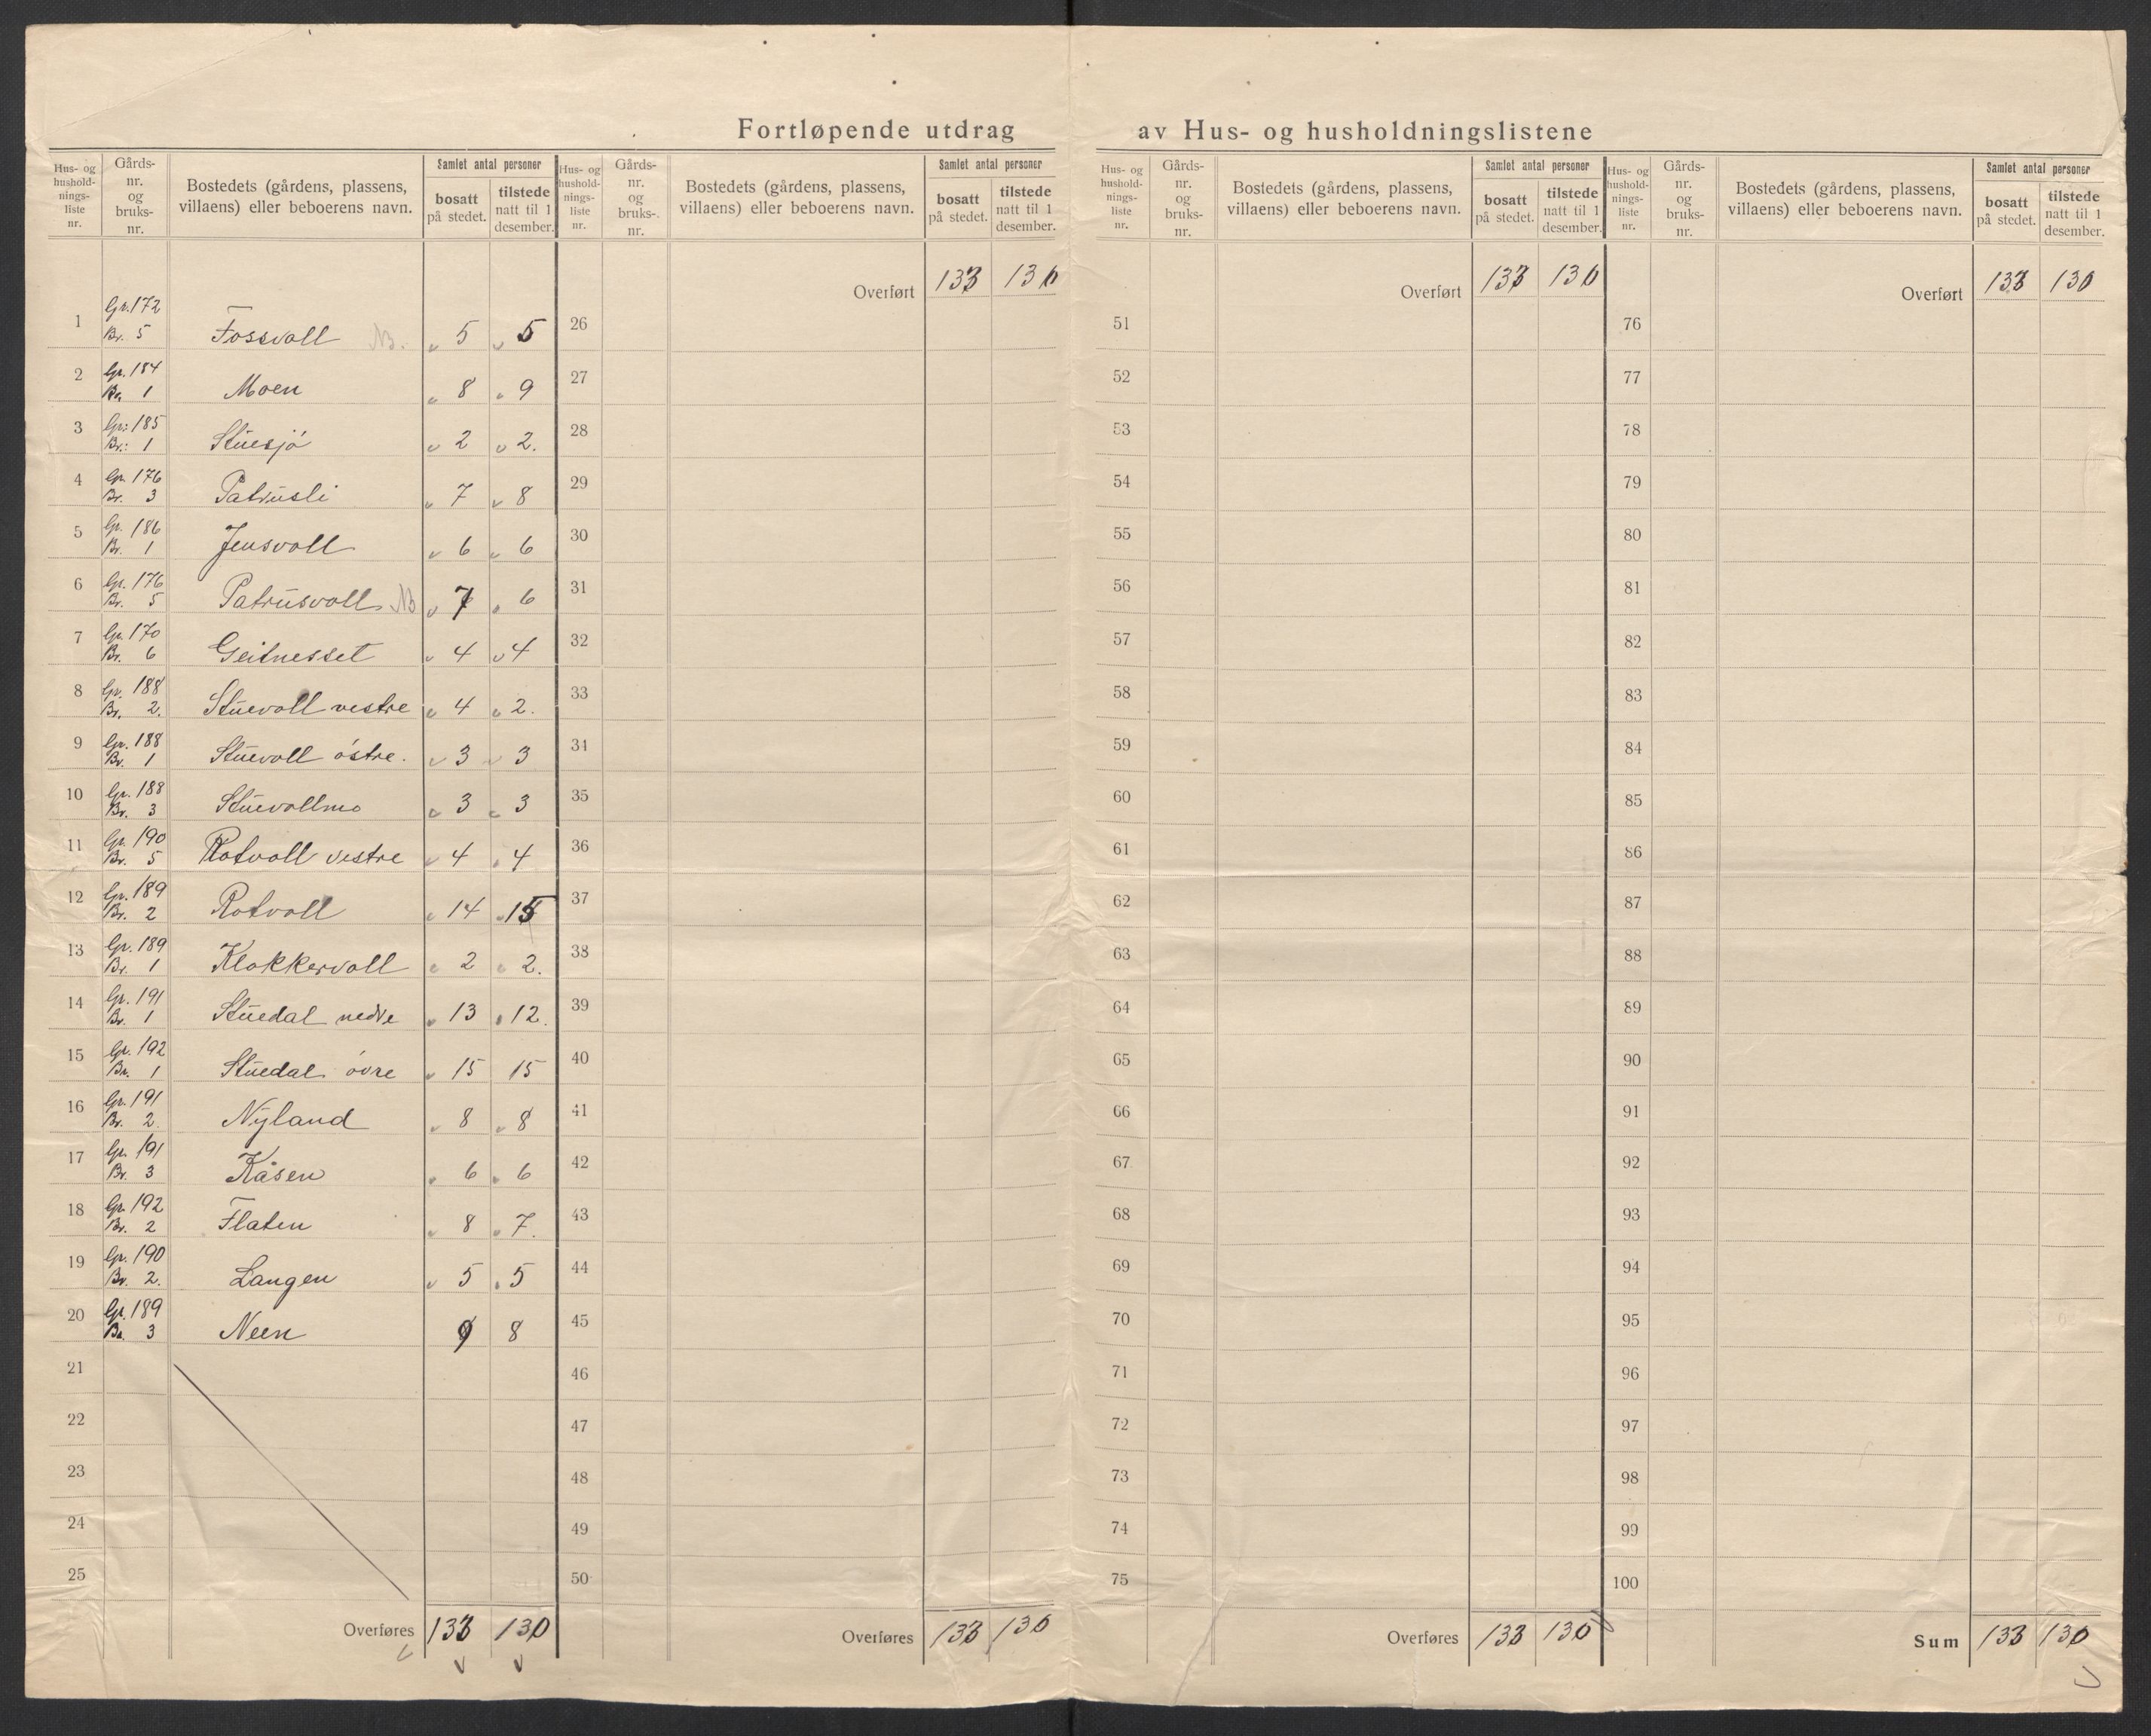 Fortløpende utdrag av Hus- og husholdningslistene
Hus- og hushold-nings-liste nr. Gårds-nr. og bruks-nr. Bostedets (gårdens, plassens, villaens) eller beboerens navn. Samlet antal personer bosatt på stedet. tilstede natt til 1 desember.
Hus- og hushold-nings-liste nr. Gårds-nr. og bruks-nr. Bostedets (gårdens, plassens, villaens) eller beboerens navn. Samlet antal personer bosatt på stedet. tilstede natt til 1 desember.
Hus- og hushold-nings-liste nr. Gårds-nr. og bruks-nr. Bostedets (gårdens, plassens, villaens) eller beboerens navn. Samlet antal personer bosatt på stedet. tilstede natt til 1 desember.
Hus- og hushold-nings-liste nr. Gårds-nr. og bruks-nr. Bostedets (gårdens, plassens, villaens) eller beboerens navn. Samlet antal personer bosatt på stedet. tilstede natt til 1 desember.
1 Gr. 172 Br. 5 Fossvoll NB. 5 5
2 Gr. 184 Br. 1 Moen 8 9
3 Gr: 185 Br.: 1 Stuesjø 2 2.
4 Gr. 176 Br. 3 Patrusli 7 8
5 Gr. 186 Br. 1 Jensvoll 6 6
6 Gr. 176 Br. 5 Patrusvoll NB 7 6
7 Gr. 170 Br. 6 Geitnesset 4 4
8 Gr. 188 Br. 2. Stuevoll vestre 4 2.
9 Gr. 188 Br. 1 Stuevoll østre. 3 3
10 Gr. 188 Br. 3 Stuevollmo 3 3
11 Gr. 190 Br. 5 Rotvoll vestre 4 4
12 Gr. 189 Br. 2 Rotvoll 14 15
13 Gr. 189 Br. 1 Klokkervoll 2 2.
14 Gr. 191 Br. 1 Stuedal nedre 13 12.
15 Gr. 192 Br. 1 Stuedal øvre 15 15
16 Gr. 191 Br. 2. Nyland 8 8
17 Gr. 191 Br. 3 Kåsen 6 6
18 Gr. 192 Br. 2 Flaten 8 7.
19 Gr. 190 Br. 2. Langen 5 5
20 Gr. 189 Br. 3 Neen 9 8
21
22
23
24
25
Overføres 133 130
Overført 133 130
26
27
28
29
30
31
32
33
34
35
36
37
38
39
40
41
42
43
44
45
46
47
48
49
50
Overføres 133 130
Overført 133 130
51
52
53
54
55
56
57
58
59
60
61
62
63
64
65
66
67
68
69
70
71
72
73
74
75
Overføres 133 130
Overført 133 130
76
77
78
79
80
81
82
83
84
85
86
87
88
89
90
91
92
93
94
95
96
97
98
99
100
Sum 133 130